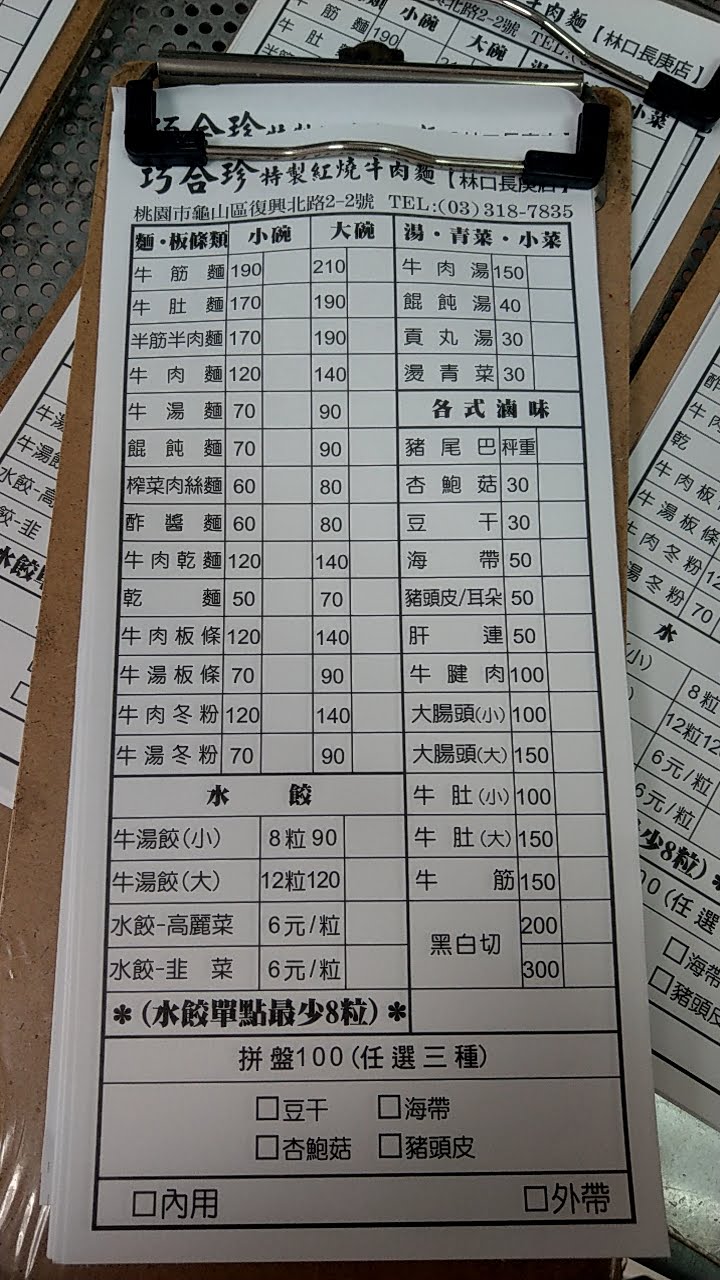 巧合珍特製紅燒牛肉麵【林口長庚店】
桃園市龜山區復興北路2-2號 TEL:(03)318-7835
麵・板條類 小碗 大碗 湯・青菜・小菜
牛筋麵 190 210 牛肉湯 150
牛肚麵 170 190 餛飩湯 40
半筋半肉麵 170 190 貢丸湯 30
牛肉麵 120 140 燙青菜 30
牛湯麵 70 90 各式滷味
餛飩麵 70 90 豬尾巴 秤重
榨菜肉絲麵 60 80 杏鮑菇 30
酢醬麵 60 80 豆干 30
牛肉乾麵 120 140 海帶 50
乾麵 50 70 豬頭皮/耳朵 50
牛肉板條 120 140 肝連 50
牛湯板條 70 90 牛腱肉 100
牛肉冬粉 120 140 大腸頭(小) 100
牛湯冬粉 70 90 大腸頭(大) 150
水餃 牛肚(小) 100
牛湯餃(小) 8粒90 牛肚(大) 150
牛湯餃(大) 12粒120 牛筋 150
水餃-高麗菜 6元/粒 黑白切 200
水餃-韭菜 6元/粒 300
*(水餃單點最少8粒)*
拼盤100(任選三種)
□豆干 □海帶
□杏鮑菇 □豬頭皮
□內用 □外帶